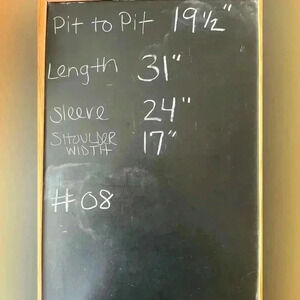 Pit to Pit 19½"
Length 31"
Sleeve 24"
SHOULDER WIDTH 17"
#08